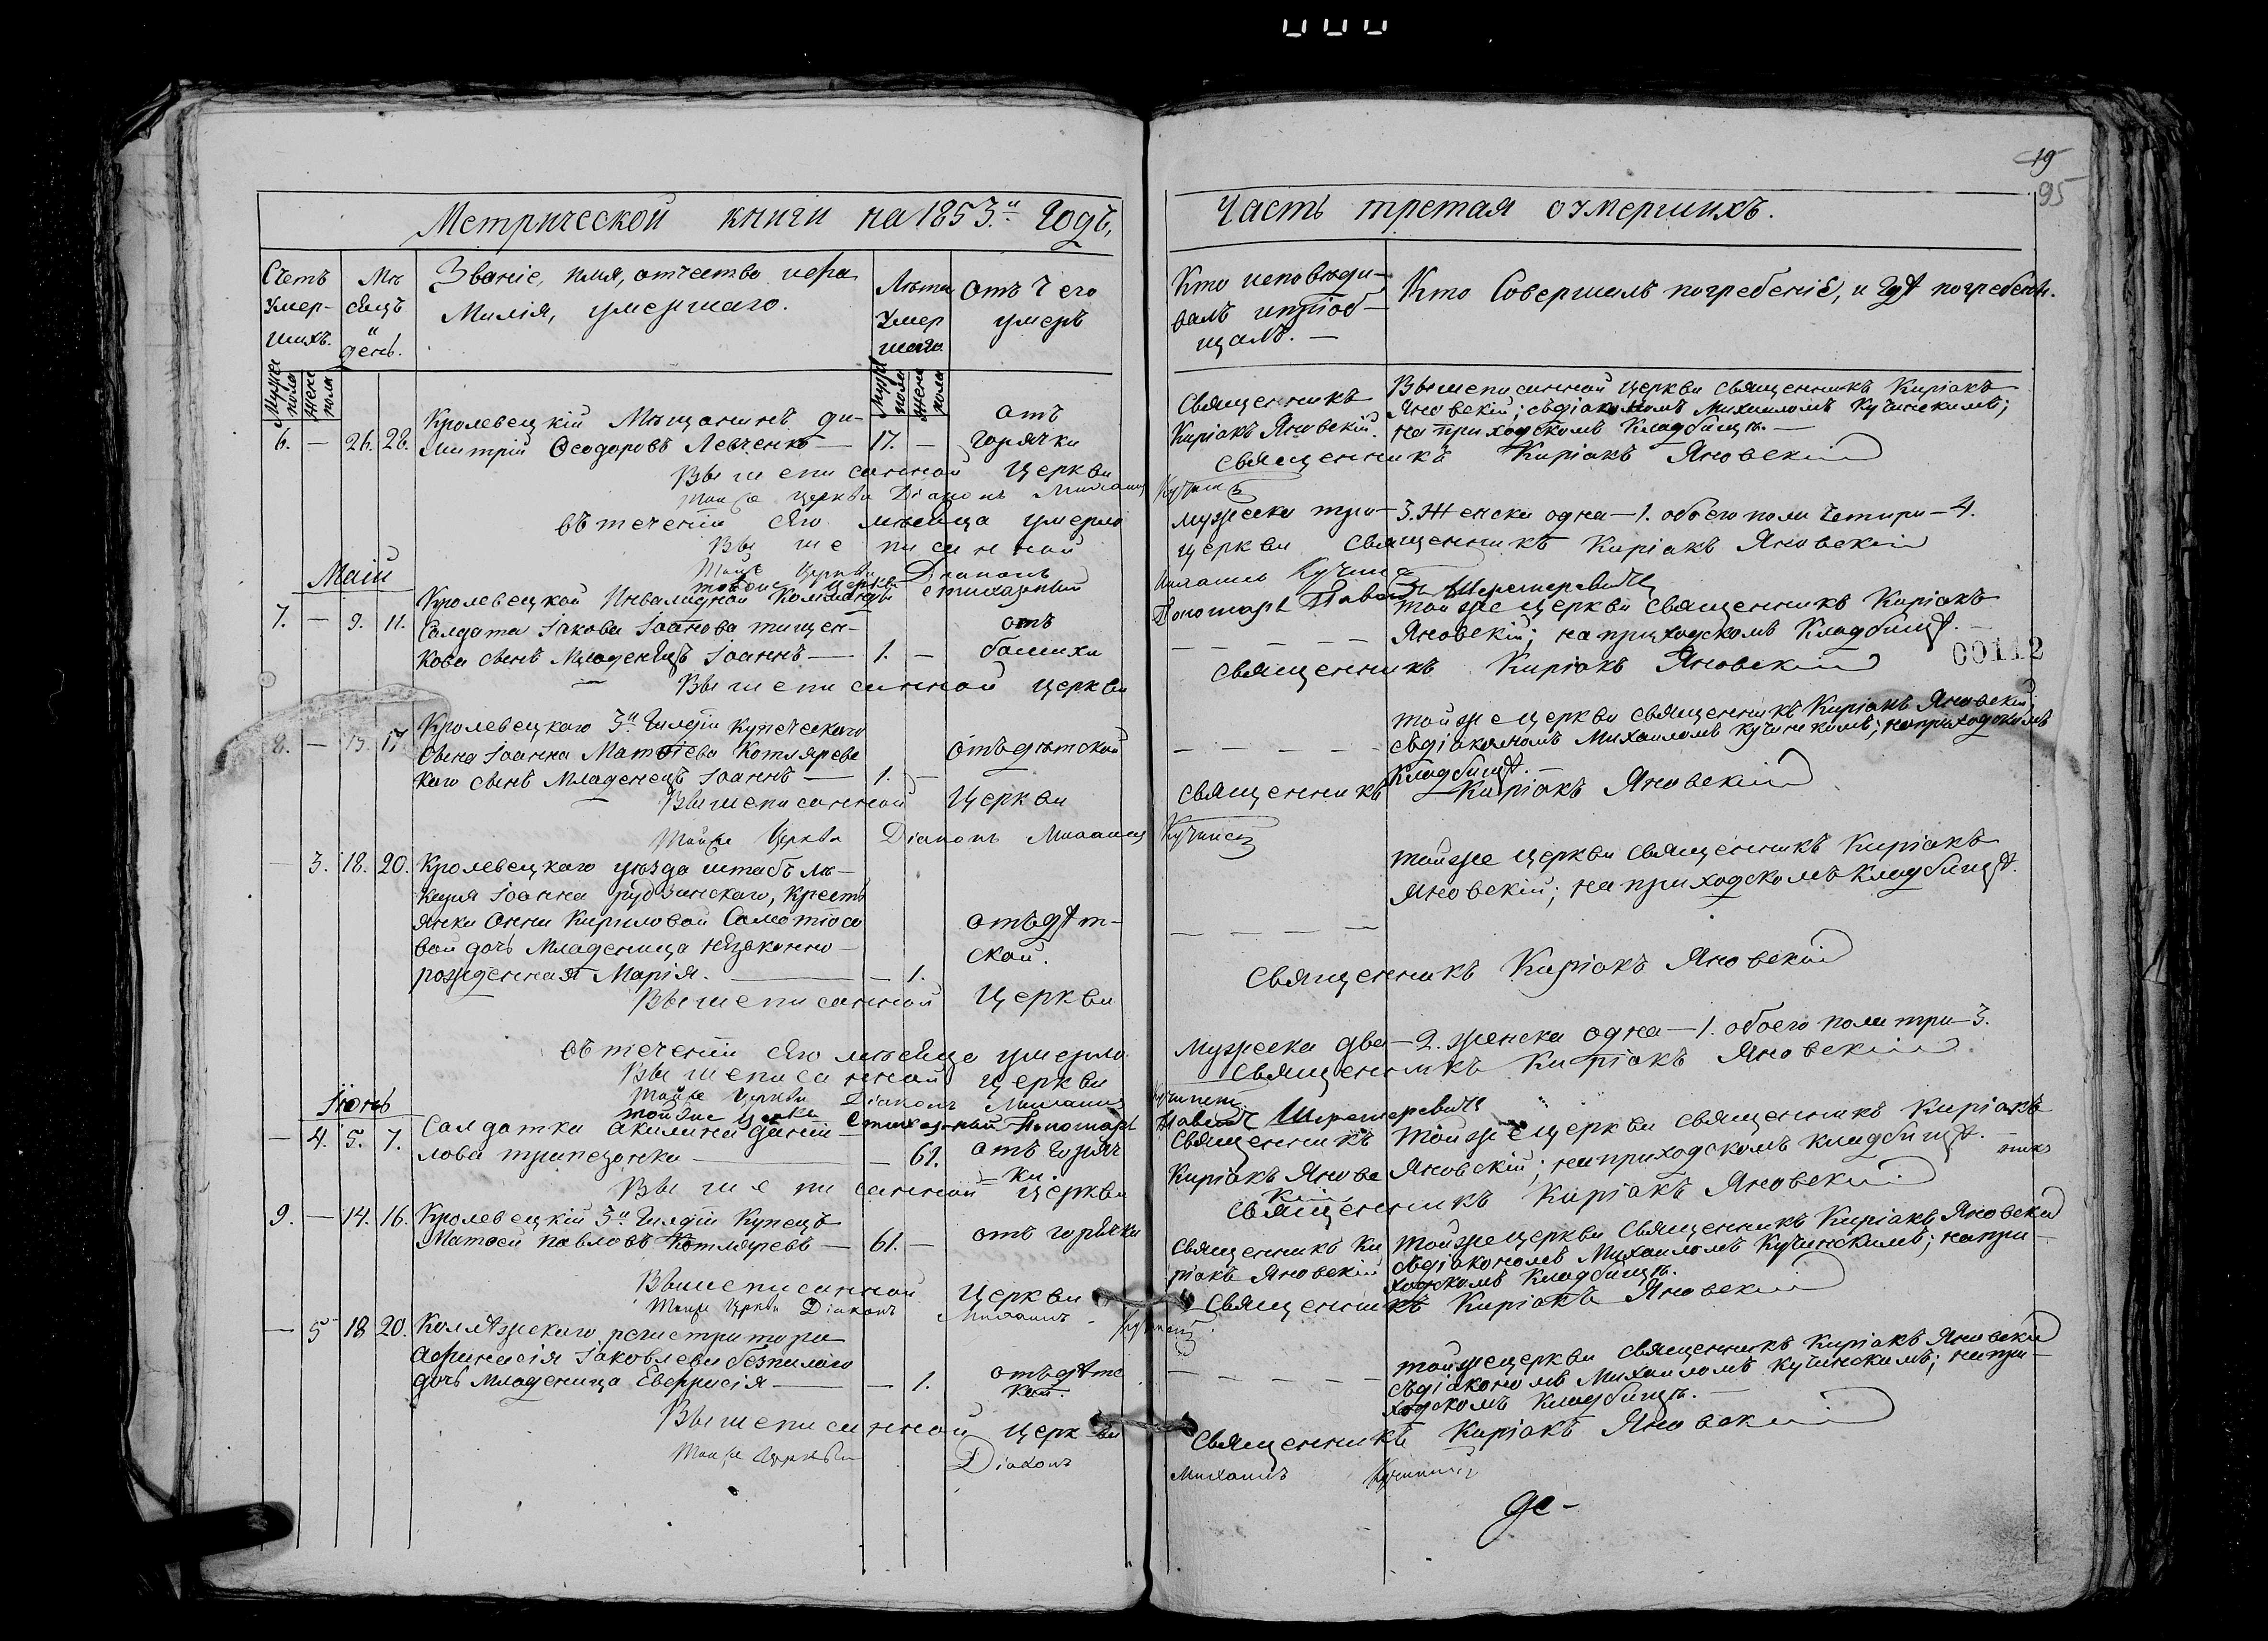 19
95
Метрической книги на 1853.й Годъ,
Часть третая о умершихъ.
Счетъ умер-шихъ.
Мѣсяцъ и день.
Званіе, имя, отчество и фа
милія, умершаго.
Лѣта умершаго
Отъ чего умеръ
Кто исповѣди-
валъ и пріоб-
щалъ. —
Кто Совершилъ погребеніе, и гдѣ погребены.
Мужеска пола
Женска пола
Мужеска пола
Женска пола
Кролевецкій Мѣщанинъ Ди-
6. — 26. 28. митрій Ѳеодоровъ Левченко — 17. —
отъ
горячки
Священникъ
Киріакъ Яновскій.
Вышеписанной церкви священникъ Киріакъ
Яновскій; съ діакономъ Михаиломъ Кучинскимъ;
на приходскомъ кладбищѣ. —
Вышеписанной Церкви священникъ Киріакъ Яновскій
Тойже церкви Діаконъ Михаилъ
въ теченіи сего мѣсяца умерло мужеска три — 3. Женска одна — 1. обоего пола четыри — 4.
Вышеписанной церкви священникъ Киріакъ Яновскій
Тойже Церкви Діаконъ
тойже церкви стихарный Пономарь Павелъ Шереметевичъ
Маій
Кролевецкой Инвалидной Комманды
7. — 9. 11. Салдата Іакова Іоанова тищен-
кова сынъ младенецъ Іоаннъ — 1. —
отъ
башихи
тойже церкви священникъ Киріакъ
Яновскій; на приходскомъ кладбищѣ. —
00112
Вышеписанной церкви священникъ Киріакъ Яновскій
Кролевецкаго 3й Гилдіи купеческаго
8. — 15. 17 сына Іоанна Матѳѣева Котляревс
каго сынъ младенецъ Іоаннъ — 1. —
отъ дѣтской
тойже церкви священникъ Киріакъ Яновскій;
съ діакономъ Михаиломъ Кучинскимъ; на приходскомъ
кладбищѣ. —
Вышеписанной Церкви священникъ Киріакъ Яновскій
Тойже Церкви Діаконъ Михаилъ
— 3. 18. 20. Кролевецкаго уѣзда штабъ лѣ-
каря Іоанна крестъ
янки Анни Кириловой
вой дочь младеница незаконно-
рожденная Марія. — — 1.
отъ дѣт-
ской.
тойже церкви священникъ Киріакъ
Яновскій; на приходскомъ кладбищѣ.
Вышеписанной Церкви Священникъ Киріакъ Яновскій
въ теченіи сего мѣсяца умерло мужеска два — 2. женска одна — 1. обоего пола три — 3.
Вышеписанной церкви священникъ Киріакъ Яновскій
Тойже Церкви Діаконъ Михаилъ
тойже церкви стихарный Пономарь Павелъ Шереметевичъ
Іюнь
— 4. 5. 7. Салдатка Акилина Даніи-
лова — — 61.
отъ горяч
ки.
Священникъ
Киріакъ Яновс
кій
тойже церкви священникъ Киріакъ
Яновскій; на приходскомъ кладбищѣ. —
Вышеписанной церкви священникъ Киріакъ Яновскій
9. — 14. 16. Кролевецкій 3й Гилдіи Купецъ
Матѳей Павловъ Котляревъ — 61. —
отъ горячки
Священникъ Ки
ріакъ Яновскій
тойже церкви священникъ Киріакъ Яновскій
съ діакономъ Михаиломъ Кучинскимъ; на при-
ходскомъ кладбищѣ.
Вышеписанной Церкви Священникъ Киріакъ Яновскій
Тойже Церкви Діаконъ Михаилъ
— 5 18 20. Коллѣжскаго регистратора
Афанасія Іаковлева
дочь младеница Евфросія — — 1.
отъ дѣтс
кой.
тойже церкви священникъ Киріакъ Яновскій
съ діакономъ Михаиломъ Кучинскимъ; на при-
ходскомъ кладбищѣ. —
Вышеписанной церкви священникъ Киріакъ Яновскій
Тойже Церкви Діаконъ Михаилъ
де-